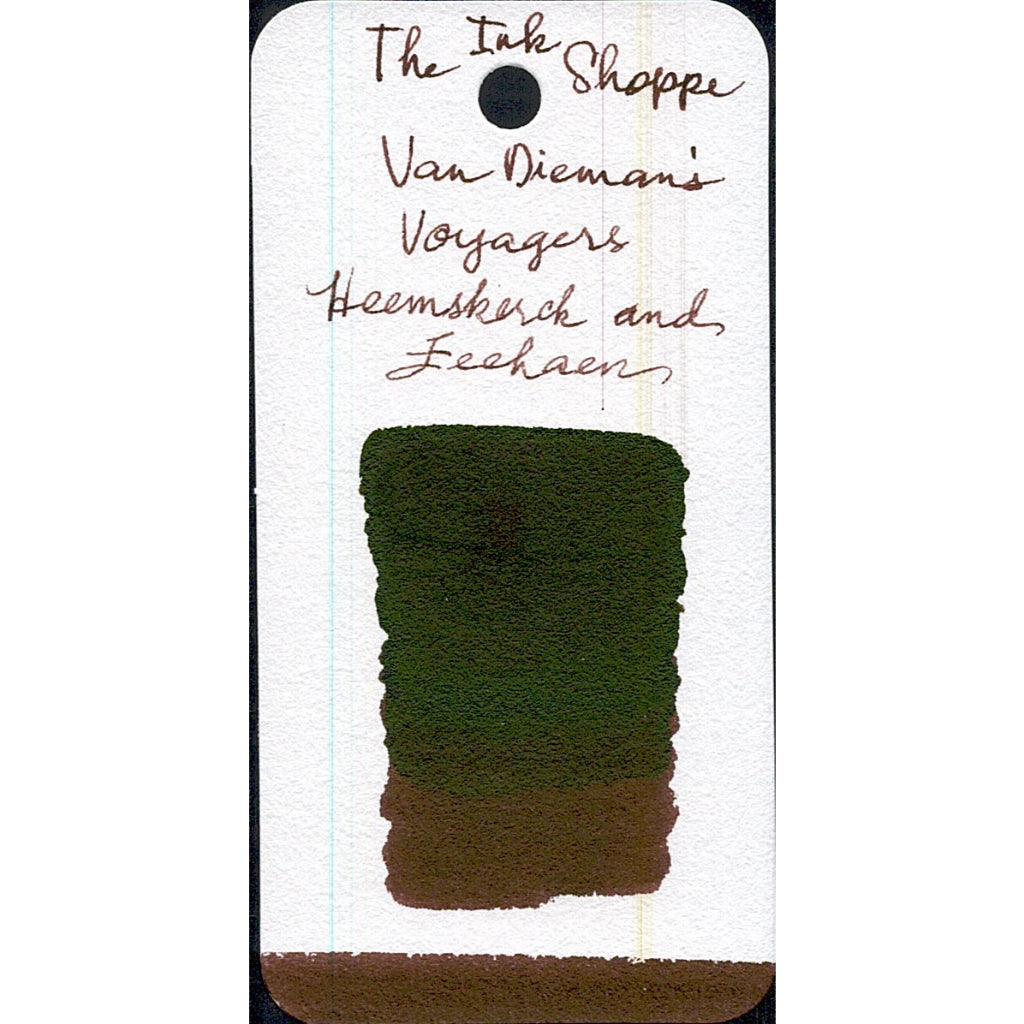 The Ink Shoppe
Van Dieman's
Voyagers
Heemskerck and
Zeehaen